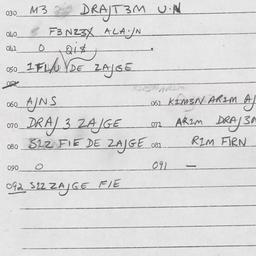 030 M3 DRAJT3M U.N
040 F3NZ3X ALA.JN
041 O QI8
050 IFLN DE ZAJGE
060 AJNS 061 K1M3N AR1M AJ
070 DRAJ 3 ZAJGE 071 AR1M DRAJ3M
080 S1Z F1E DE ZAJGE 081 R1M F1RN
090 O 091 —
092 S1Z ZAJGE F1E